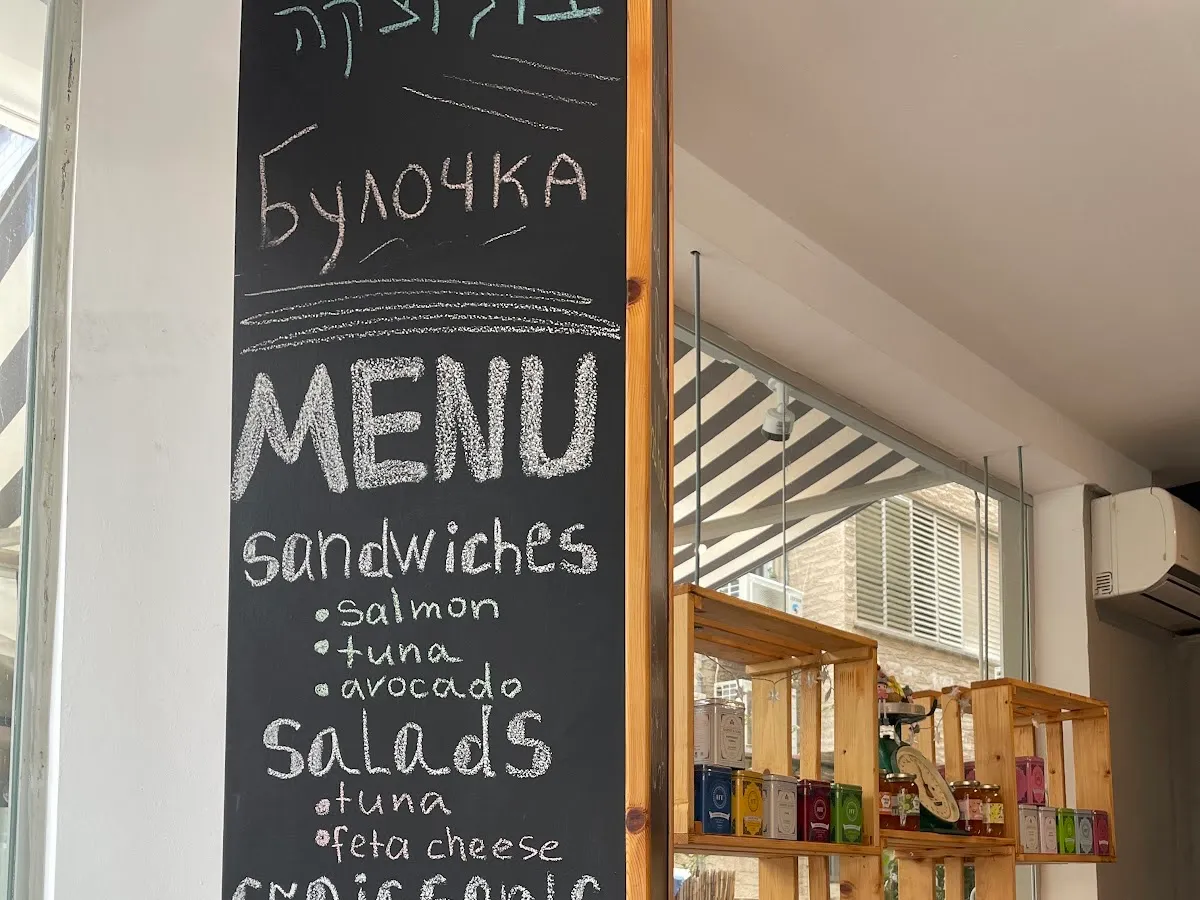 Булочка
MENU
sandwiches
• salmon
• tuna
• avocado
salads
• tuna
• feta cheese